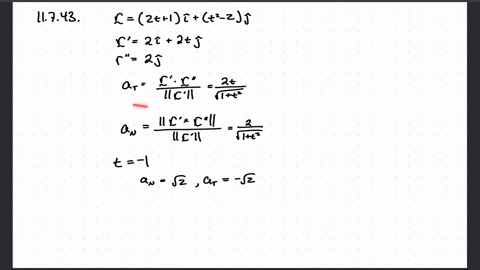 11.7.43. r = (2t+1) î + (t²-2) ĵ
r' = 2î + 2t ĵ
r'' = 2ĵ
a_T = r' · r'' / ||r'|| = 2t / √(1+t²)
a_N = ||r' × r''|| / ||r'|| = 2 / √(1+t²)
t = -1
a_N = √2 , a_T = -√2